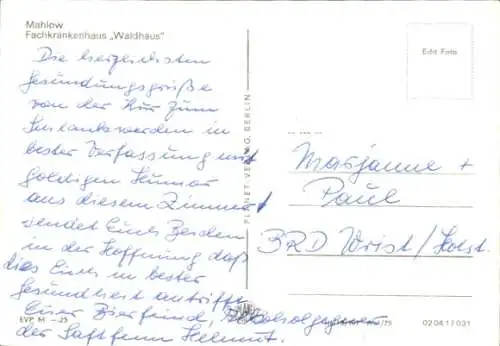 Mahlow
Fachkrankenhaus „Waldhaus"
Die herzlichsten
Gesundungsgrüße
von der Kur zum
in
bester Verfassung mit
goldigen Humor
aus diesem Zimmer
sendet Euch Beiden
in der Hoffnung daß
dies Euch in bester
Gesundheit antrifft
Euer Bierfreund,
der Saft Helmut.
EVP M -,25
PLANET-VERLAG BERLIN
Edit Foto
Marianne +
Paul
BRD Wrist/Holst.
02 04 17 031